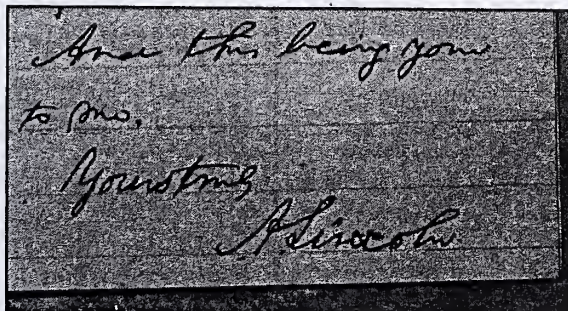 And this being your
to me.
Yours truly
A. Lincoln